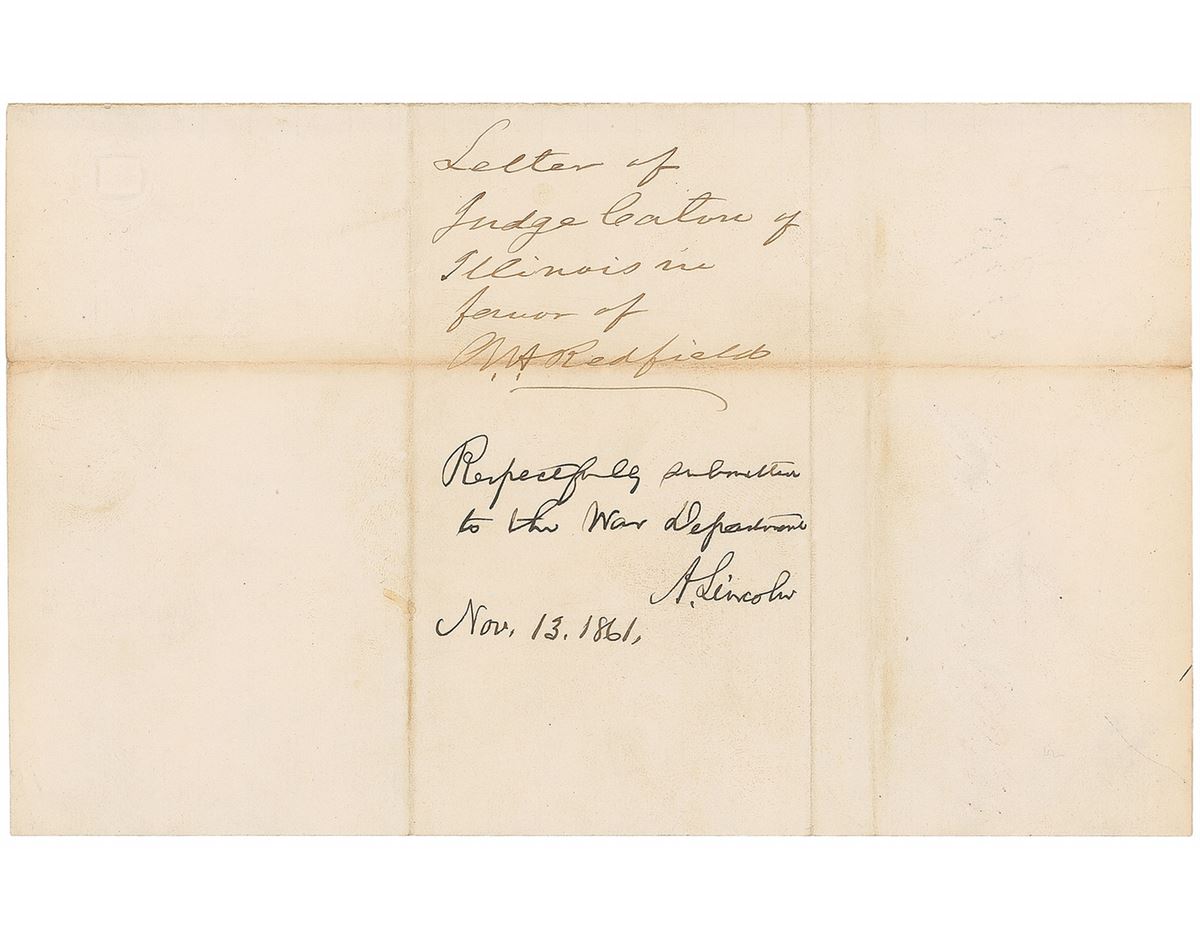 Letter of
Judge Caton of
Illinois in
favor of
W. H. Redfield
Respectfully submitted
to the War Department
A. Lincoln
Nov. 13. 1861.